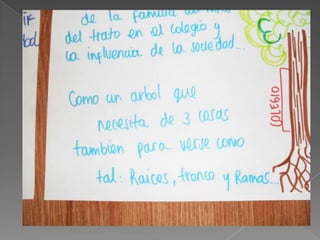 de la familia
del trato en el colegio y
la influencia de la sociedad...
Como un arbol que
necesita de 3 cosas
tambien para verse como
tal: Raices, tronco y Ramas...
COLEGIO